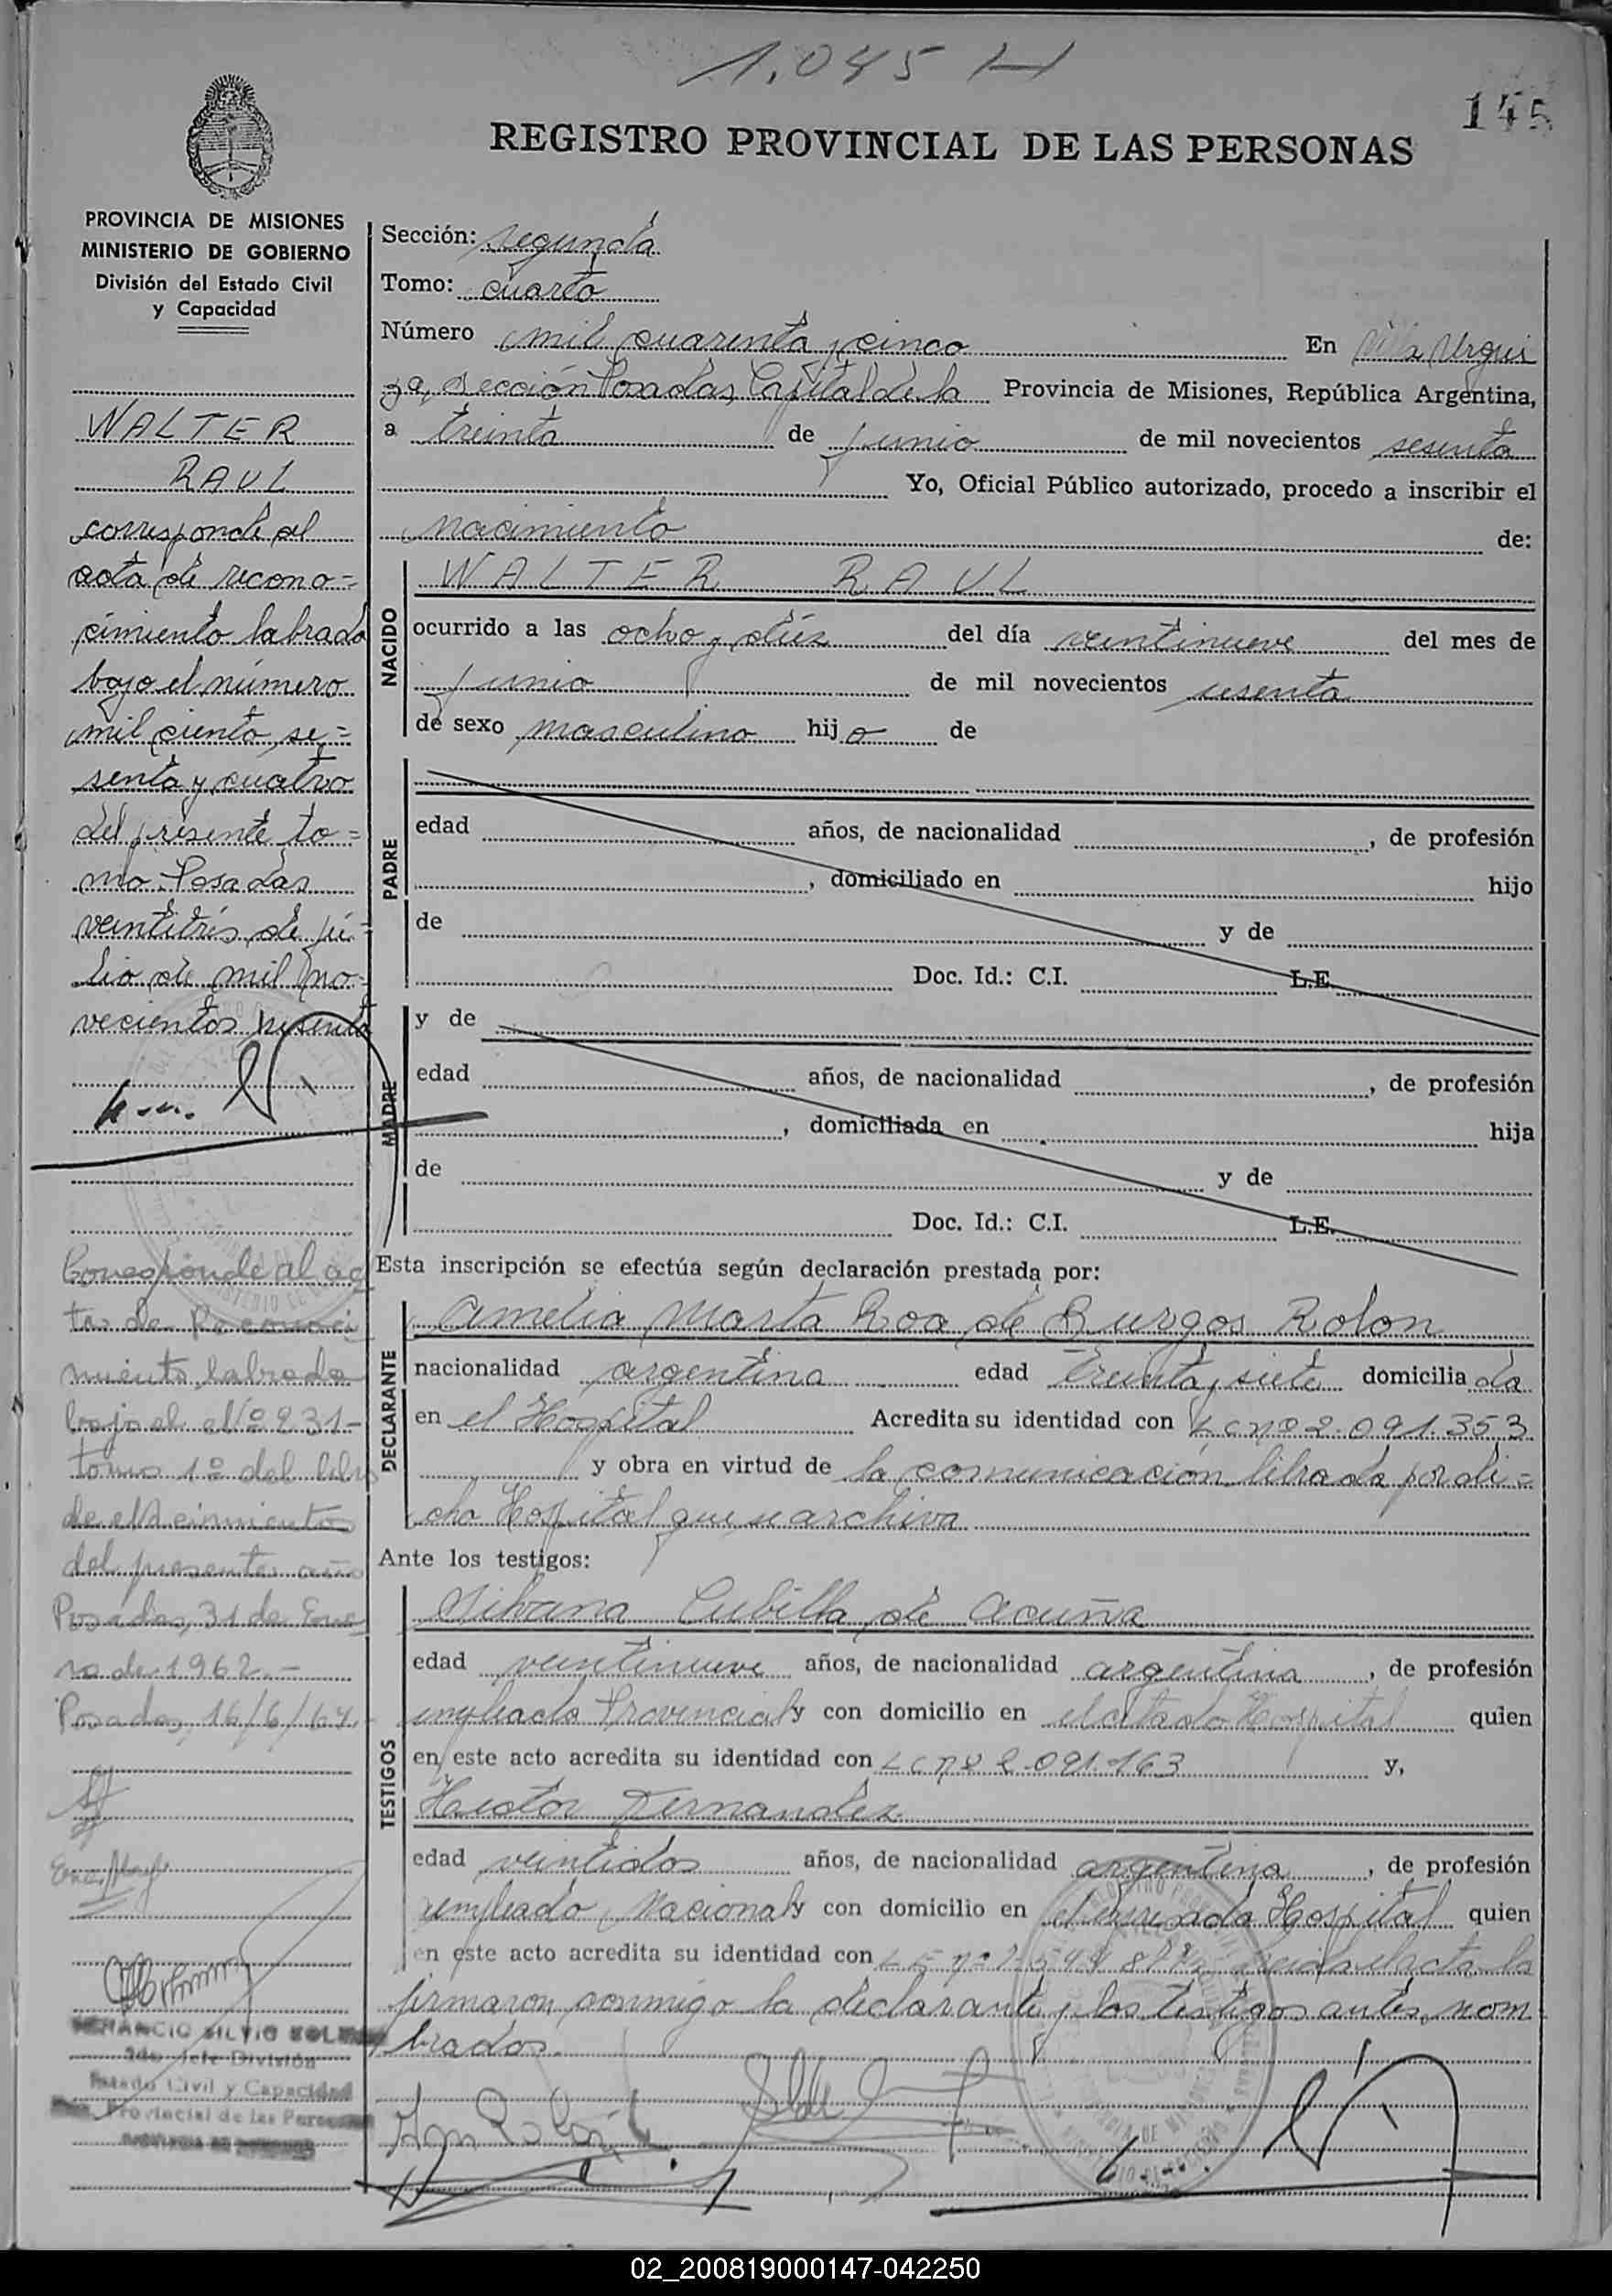 1.045 H
145
REGISTRO PROVINCIAL DE LAS PERSONAS
PROVINCIA DE MISIONES
MINISTERIO DE GOBIERNO
División del Estado Civil
y Capacidad
WALTER
RAUL
corresponde al
acta de recono=
cimiento labrada
bajo el número
mil ciento se=
senta y cuatro
del presente to=
mo. Posadas
veintitrés de ju=
lio de mil no=
vecientos sesenta
Corresponde al ac
ta de Reconoci
miento labrada
bajo el Nº 231-
tomo 1º del libro
de Nacimientos
del presente año
Posadas, 31 de Ene
ro de 1962.-
Posadas, 16/6/64.
VENANCIO SILVIO
2do. Jefe División
Estado Civil y Capacidad
Provincial de las Personas
Sección: segunda
Tomo: cuarto
Número mil cuarenta y cinco En Villa Urqui
za, Sección Posadas, Capital de la Provincia de Misiones, República Argentina,
a treinta de junio de mil novecientos sesenta
Yo, Oficial Público autorizado, procedo a inscribir el
nacimiento de:
NACIDO
WALTER RAUL
ocurrido a las ocho y diez del día veintinueve del mes de
junio de mil novecientos sesenta
de sexo masculino hijo de
PADRE
edad años, de nacionalidad , de profesión
, domiciliado en hijo
de y de
Doc. Id.: C.I. L.E.
MADRE
y de
edad años, de nacionalidad , de profesión
, domiciliada en hija
de y de
Doc. Id.: C.I. L.E.
Esta inscripción se efectúa según declaración prestada por:
DECLARANTE
Amelia Marta Roa de Burgos Rolon
nacionalidad argentina edad treinta y siete domiciliada
en el Hospital Acredita su identidad con L C nº 2.091.353
y obra en virtud de la comunicación librada por di=
cho Hospital que se archiva
Ante los testigos:
TESTIGOS
Silvana Cubilla de Acuña
edad veintinueve años, de nacionalidad argentina, de profesión
empleada Provincial y con domicilio en el citado Hospital quien
en este acto acredita su identidad con L C nº 2.091.163 y,
Hector Fernandez
edad veintidos años, de nacionalidad argentina, de profesión
empleado Nacional y con domicilio en el expresado Hospital quien
en este acto acredita su identidad con L E nº Leida el acta la
firmaron conmigo la declarante y los testigos antes nom
brados.
02_200819000147-042250